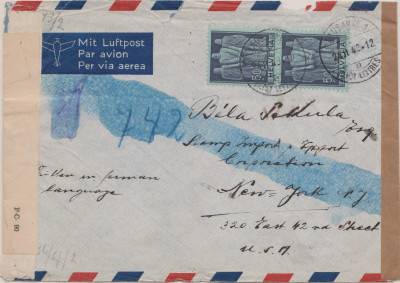 Mit Luftpost
Par avion
Per via aerea
742
Béla Sekula
Stamp Import & Export
Corporation
New-York N.Y
320 East 42 nd Street
U.S.A
in German
language
P.C. 90